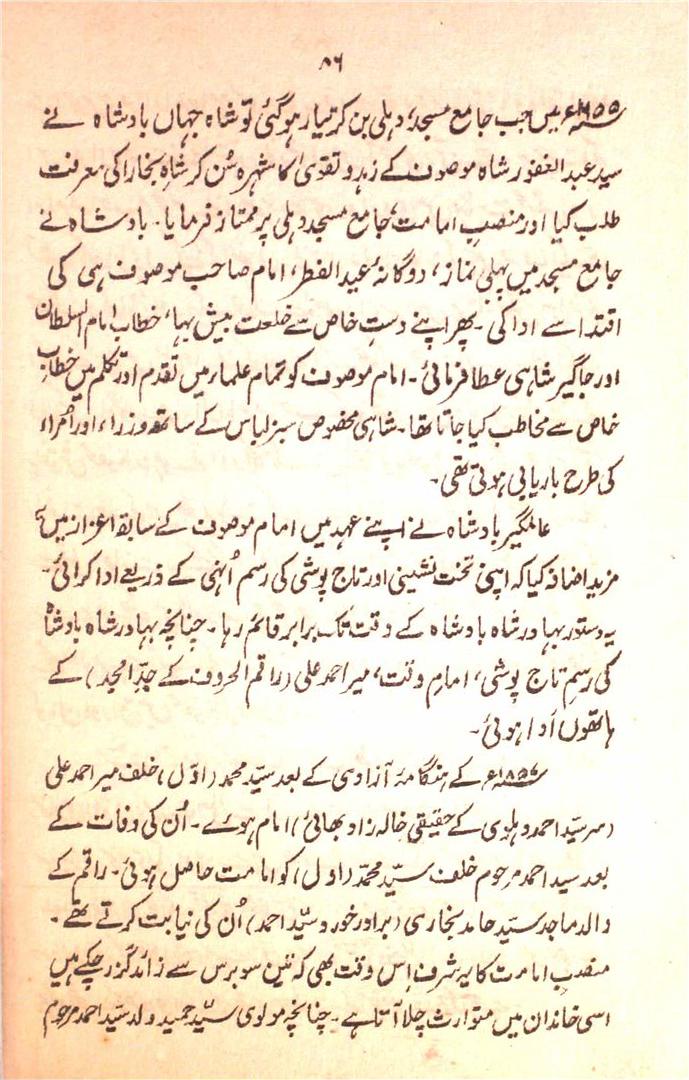 ۸۶
۱۶۵۵ء میں جب جامع مسجد، دہلی بن کر تیار ہو گئی تو شاہ جہاں بادشاہ نے
سید عبدالغفور شاہ موصوف کے زہد و تقویٰ کا شہرہ سُن کر شاہِ بخارا کی معرفت
طلب کیا اور منصبِ امامت، جامع مسجد دہلی پر ممتاز فرمایا۔ بادشاہ نے
جامع مسجد میں پہلی نماز، دوگانۂ عیدالفطر، امام صاحب موصوف ہی کی
اقتدا سے ادا کی۔ پھر اپنے دستِ خاص سے خلعت بیش بہا، خطاب امام السلطان
اور جاگیر شاہی عطا فرمائی۔ امام موصوف کو تمام علماء میں تقدم اور تکلم میں خطابِ
خاص سے مخاطب کیا جاتا تھا۔ شاہی مخصوص سبز لباس کے ساتھ وزراء اور اُمراء
کی طرح باریابی ہوتی تھی۔
عالمگیر بادشاہ نے اپنے عہد میں امام موصوف کے سابقہ اعزاز میں
مزید اضافہ کیا کہ اپنی تخت نشینی اور تاج پوشی کی رسم اُنہی کے ذریعے ادا کرائی۔
یہ دستور بہادر شاہ بادشاہ کے وقت تک برابر قائم رہا۔ چنانچہ بہادر شاہ بادشاہ
کی رسمِ تاج پوشی، امامِ وقت، میر احمد علی (راقم الحروف کے جدِّ امجد) کے
ہاتھوں اَدا ہوئی۔
۱۸۵۷ء کے ہنگامۂ آزادی کے بعد سیّد محمد (اوّل)، خلف میر احمد علی
(سر سیّد احمد دہلوی کے حقیقی خالہ زاد بھائی) امام ہوئے۔ اُن کی وفات کے
بعد سید احمد مرحوم خلف سیّد محمّد (اول) کو امامت حاصل ہوئی۔ راقم کے
والد ماجد سیّد حامد بخاری (برادر خورد سیّد احمد) اُن کی نیابت کرتے تھے۔
منصبِ امامت کا یہ شرف اِس وقت بھی کہ تین سو برس سے زائد گزر چکے ہیں
اسی خاندان میں متوارث چلا آتا ہے۔ چنانچہ مولوی سیّد حمید ولد سیّد احمد مرحوم